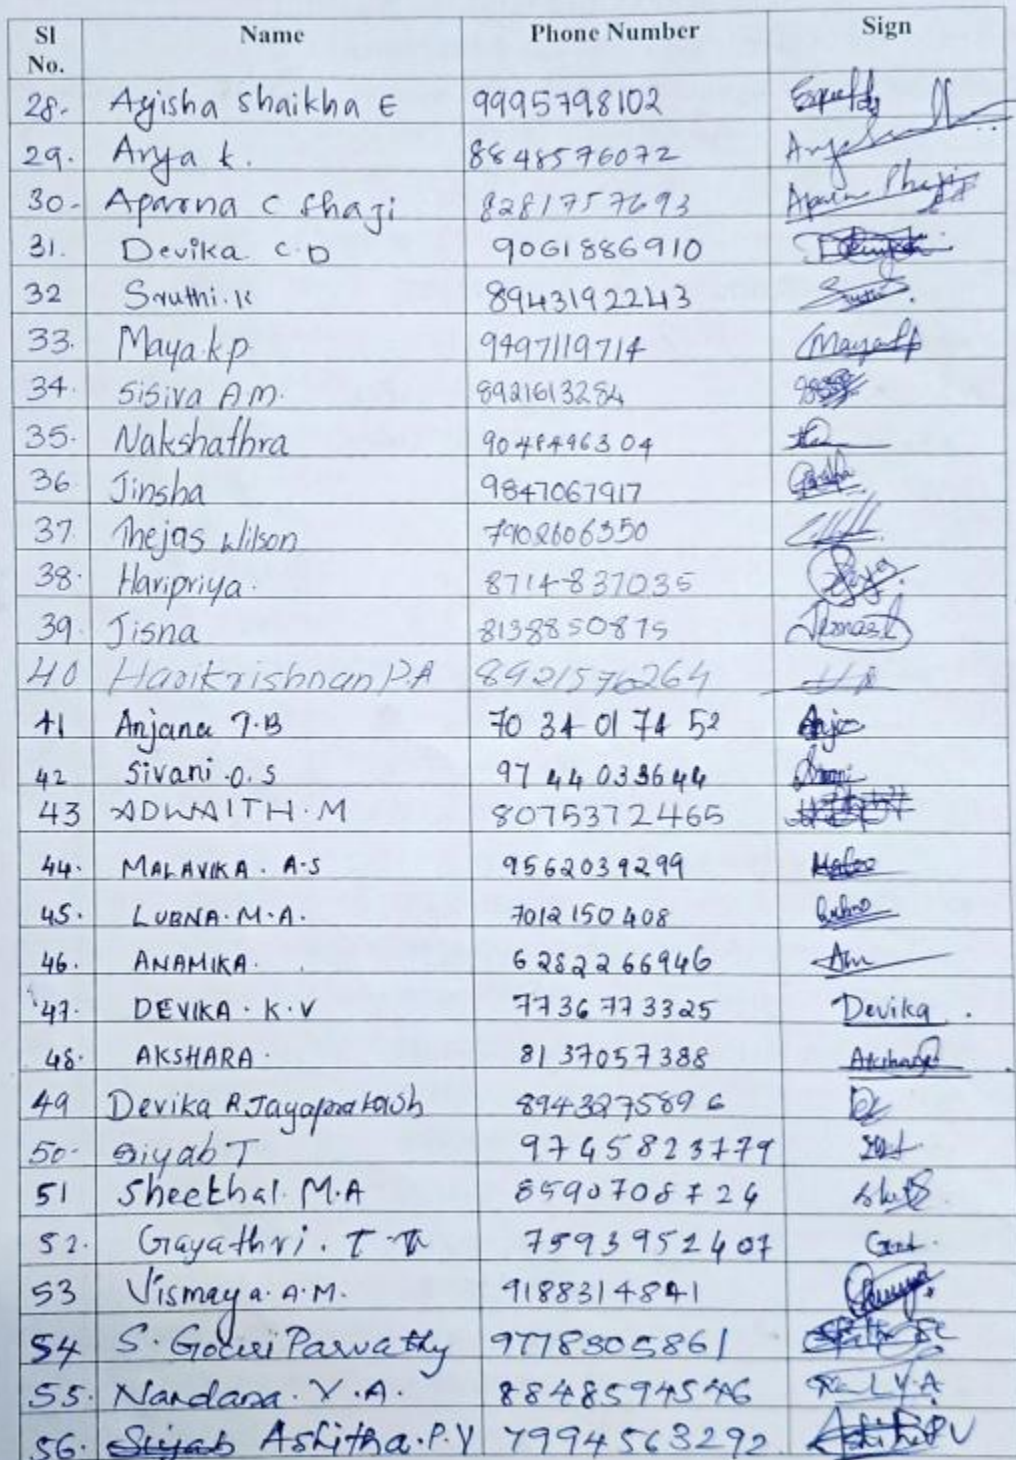 Sl No. Name Phone Number Sign
28. Ayisha Shaikha E 9995798102
29. Arya k. 8848576072 Arya
30. Aparna C Shaji 8281757693 Aparna Shaji
31. Devika C.D 9061886910 Devika
32 Sruthi.K 8943192243
33. Maya k p 9497119714 Maya
34. Sisiva A.M. 8921613284
35. Nakshathra 9048496304
36 Jinsha 9847067917
37. Thejas Wilson 7902606350
38. Haripriya. 8714837035
39. Jisna 8138850875
40 Harikrishnan P.A 8921576264
41 Anjana T.B 70 34 01 74 52
42 Sivani .O.S 97 44 033644
43 ADWAITH.M 8075372465
44. MALAVIKA . A.S 9562039299
45. LUBNA.M.A. 7012150408
46. ANAMIKA. 6282266946
47. DEVIKA . K.V 7736773325 Devika .
48. AKSHARA. 8137057388 Akshara
49 Devika R Jayaprakash 8943275896
50. Siyab T 9745823779
51 Sheethal. M.A 8590708724
52. Gayathri . T 7593952407
53 Vismaya. A.M. 9188314841
54 S. Gowri Parvathy 9778305861
55. Nandana. V.A. 8848594546
56. Ashitha.P.V 7994563292